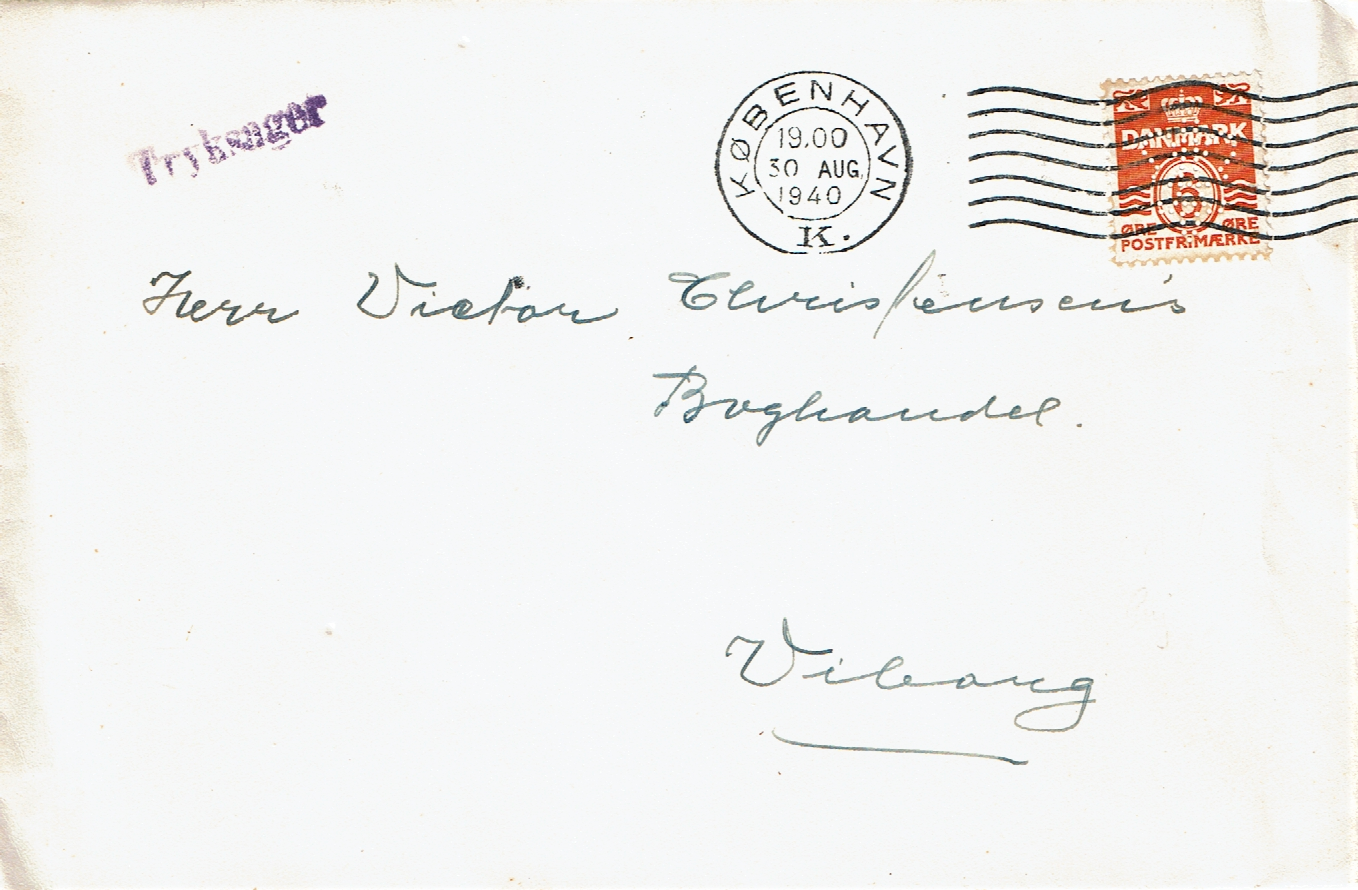 Tryksager
KØBENHAVN
19.00
30 AUG.
1940
K.
DANMARK
6
ØRE ØRE
POSTFRIMÆRKE
Herr Victor Christensen's
Boghandel.
Viborg